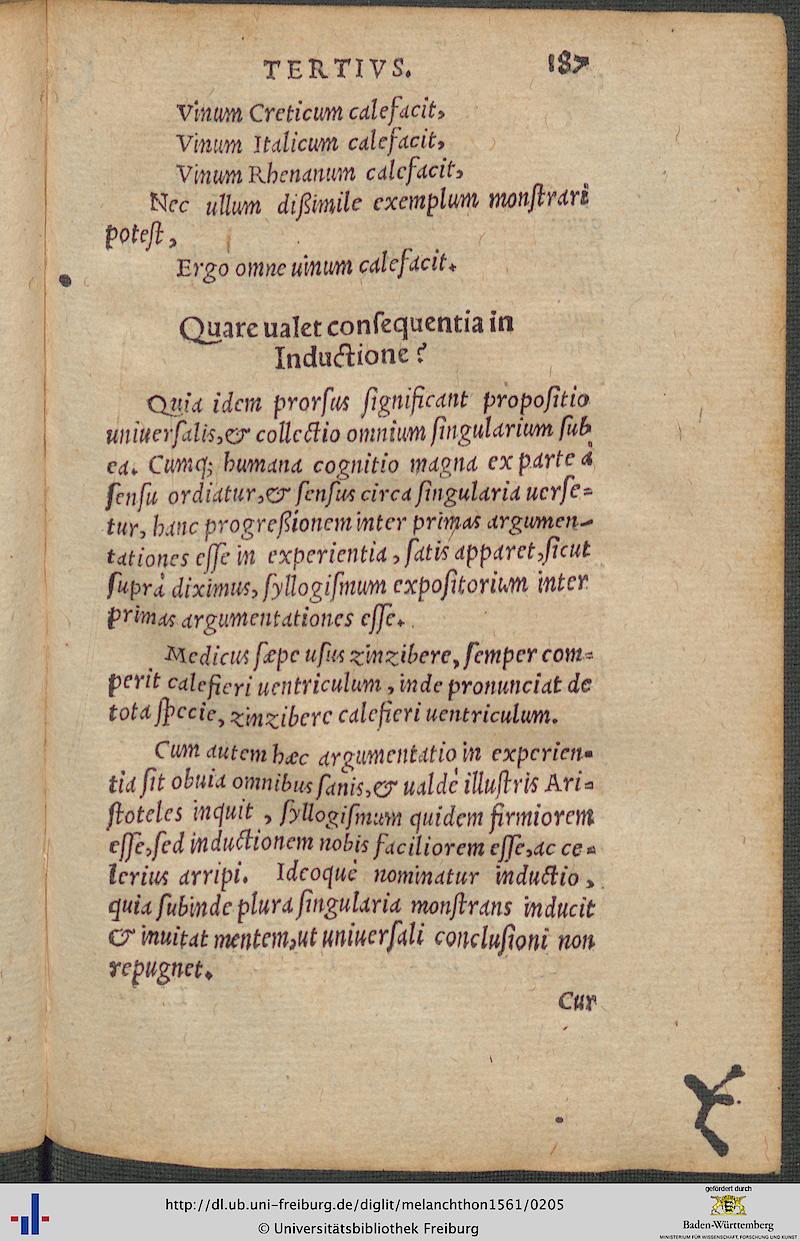 TERTIVS. 187
Vinum Creticum calefacit,
Vinum Italicum calefacit,
Vinum Rhenanum calefacit,
Nec ullum dißimile exemplum monſtrari
poteſt,
Ergo omne uinum calefacit.
Quare ualet conſequentia in
Inductione?
Quia idem prorſus ſignificant propoſitio
uniuerſalis, & collectio omnium ſingularium ſub
ea. Cumq; humana cognitio magna ex parte à
ſenſu ordiatur, & ſenſus circa ſingularia uerſe-
tur, hanc progreßionem inter primas argumen-
tationes eſſe in experientia, ſatis apparet, ſicut
ſuprà diximus, ſyllogiſmum expoſitorium inter
primas argumentationes eſſe.
Medicus ſæpe uſus zinzibere, ſemper com-
perit calefieri uentriculum, inde pronunciat de
tota ſpecie, zinzibere calefieri uentriculum.
Cum autem hæc argumentatio in experien-
tia ſit obuia omnibus ſanis, & ualdè illuſtris Ari-
ſtoteles inquit, ſyllogiſmum quidem firmiorem
eſſe, ſed inductionem nobis faciliorem eſſe, ac ce-
lerius arripi. Ideoquè nominatur inductio,
quia ſubinde plura ſingularia monſtrans inducit
& inuitat mentem, ut uniuerſali concluſioni non
repugnet.
Cur
http://dl.ub.uni-freiburg.de/diglit/melanchthon1561/0205
© Universitätsbibliothek Freiburg
gefördert durch
Baden-Württemberg
MINISTERIUM FÜR WISSENSCHAFT, FORSCHUNG UND KUNST